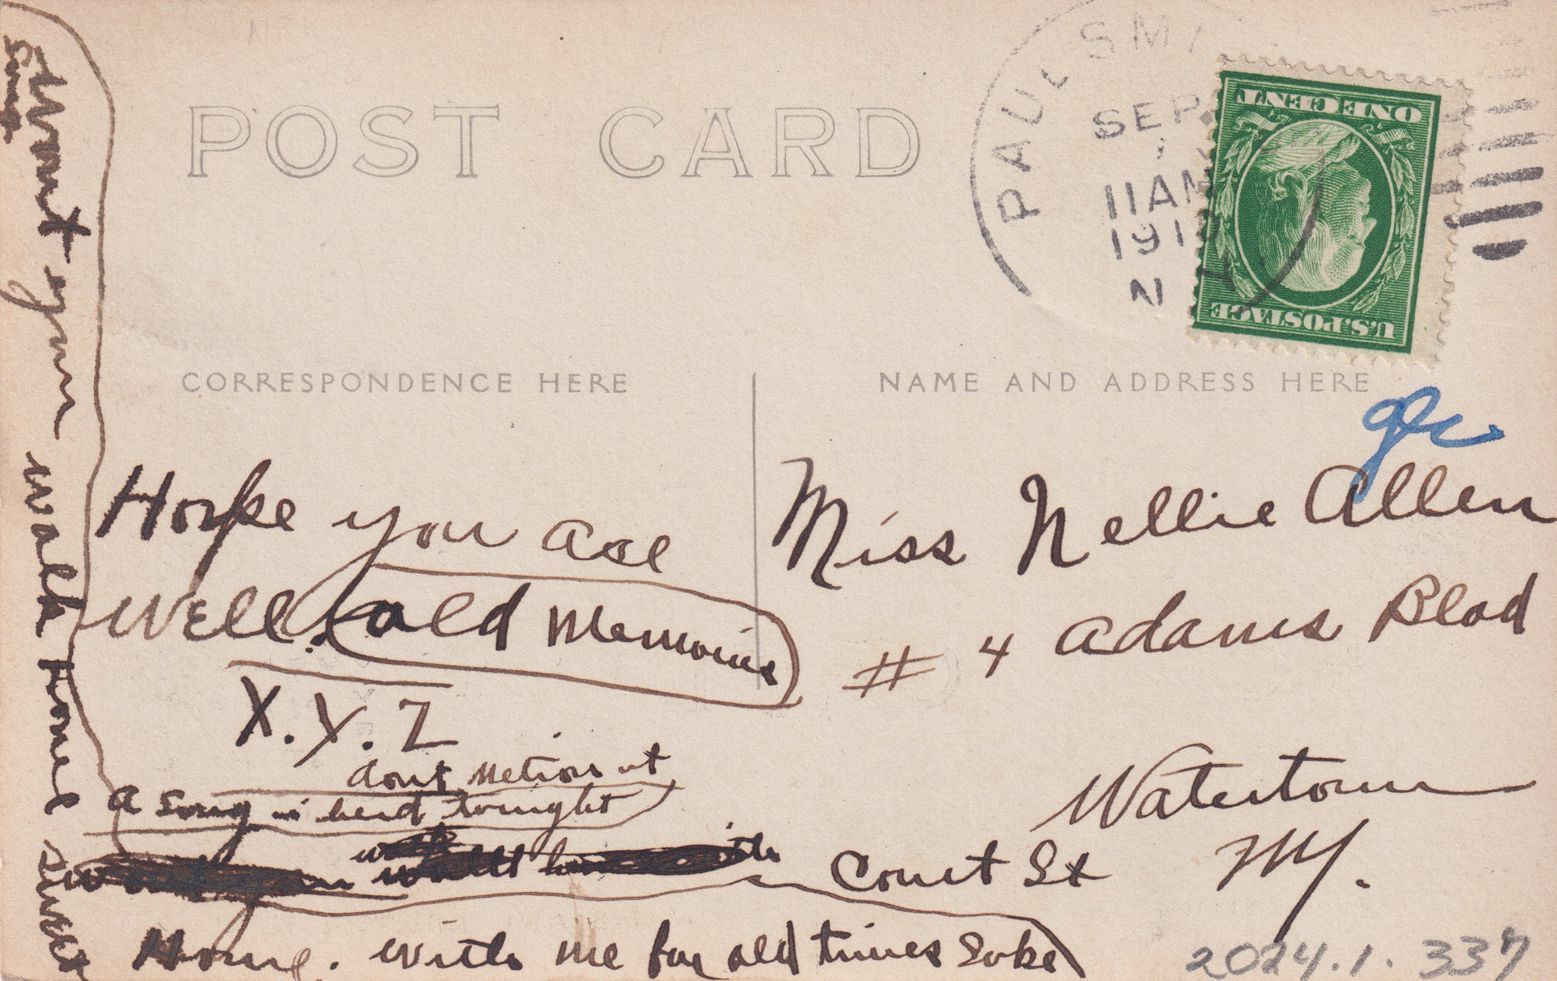 POST CARD
PAUL SMI
SEP
11AM
1910
N Y
ONE CENT
U.S.POSTAGE
CORRESPONDENCE HERE
NAME AND ADDRESS HERE
Hope you are
well. old Memories
X.Y.Z
dont metion it
A song i herd tonight
Home. with me for old times Sake
Song
Wount you walk Home sweet
Miss Nellie Allen
# 4 Adams Blod
Watertown
Court St NY.
2024.1.337